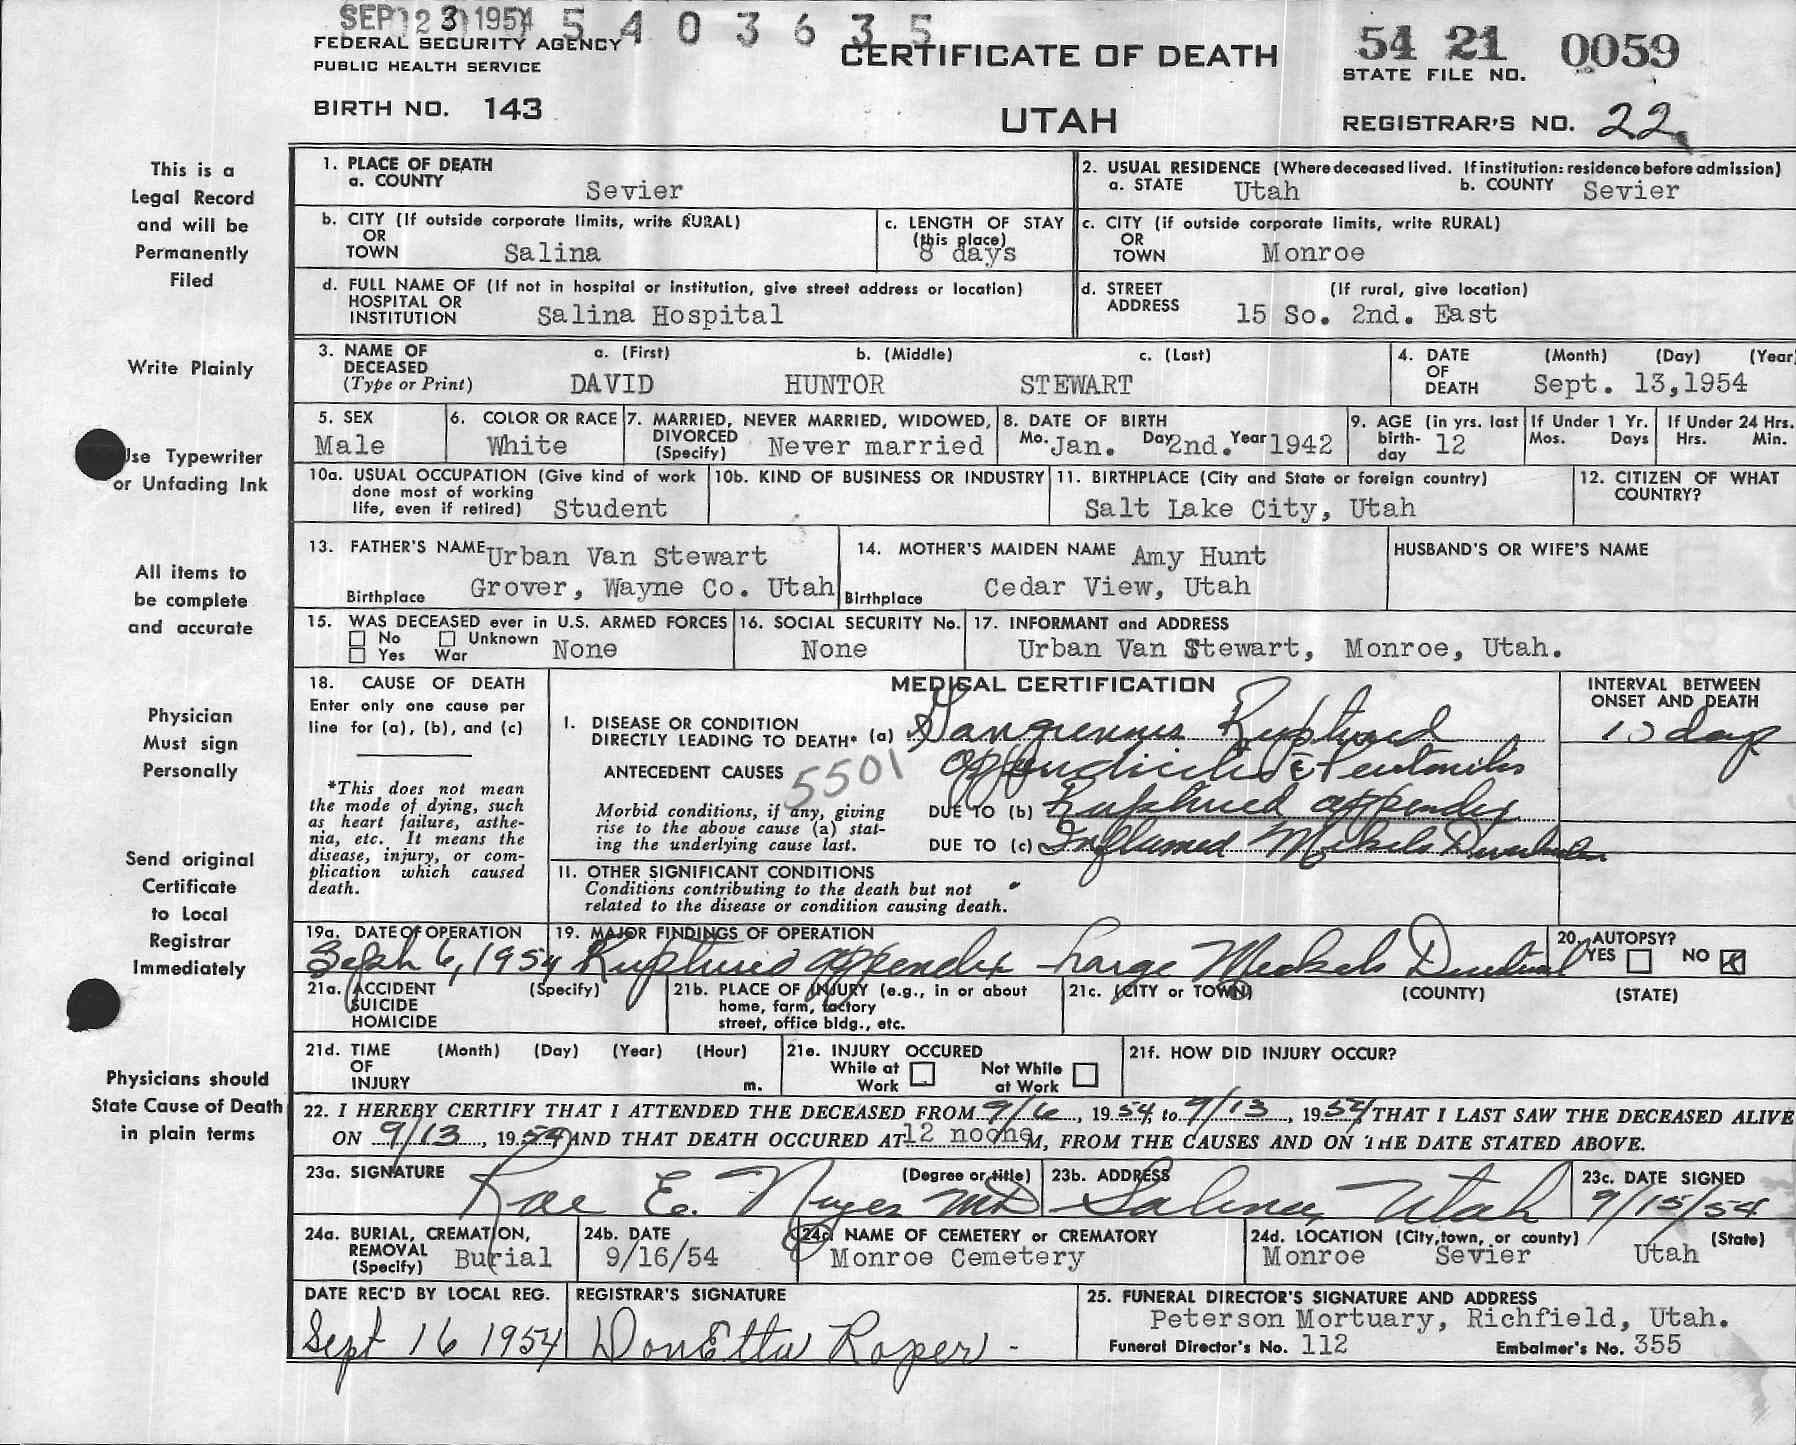 SEP 23 1954 5403635
FEDERAL SECURITY AGENCY
PUBLIC HEALTH SERVICE
CERTIFICATE OF DEATH
54 21 0059
STATE FILE NO.
BIRTH NO. 143
UTAH
REGISTRAR'S NO. 22
This is a
Legal Record
and will be
Permanently
Filed
Write Plainly
Use Typewriter
or Unfading Ink
All items to
be complete
and accurate
Physician
Must sign
Personally
Send original
Certificate
to Local
Registrar
Immediately
Physicians should
State Cause of Death
in plain terms
1. PLACE OF DEATH
a. COUNTY Sevier
2. USUAL RESIDENCE (Where deceased lived. If institution: residence before admission)
a. STATE Utah b. COUNTY Sevier
b. CITY (If outside corporate limits, write RURAL)
OR
TOWN Salina
c. LENGTH OF STAY
(this place)
8 days
c. CITY (if outside corporate limits, write RURAL)
OR
TOWN Monroe
d. FULL NAME OF (If not in hospital or institution, give street address or location)
HOSPITAL OR
INSTITUTION Salina Hospital
d. STREET (If rural, give location)
ADDRESS 15 So. 2nd. East
3. NAME OF a. (First) b. (Middle) c. (Last)
DECEASED
(Type or Print) DAVID HUNTOR STEWART
4. DATE (Month) (Day) (Year)
OF
DEATH Sept. 13,1954
5. SEX
Male
6. COLOR OR RACE
White
7. MARRIED, NEVER MARRIED, WIDOWED,
DIVORCED
(Specify) Never married
8. DATE OF BIRTH
Mo. Jan. Day 2nd. Year 1942
9. AGE (in yrs. last
birth-
day 12
If Under 1 Yr.
Mos. Days
If Under 24 Hrs.
Hrs. Min.
10a. USUAL OCCUPATION (Give kind of work
done most of working
life, even if retired) Student
10b. KIND OF BUSINESS OR INDUSTRY
11. BIRTHPLACE (City and State or foreign country)
Salt Lake City, Utah
12. CITIZEN OF WHAT
COUNTRY?
13. FATHER'S NAME Urban Van Stewart
Birthplace Grover, Wayne Co. Utah
14. MOTHER'S MAIDEN NAME Amy Hunt
Birthplace Cedar View, Utah
HUSBAND'S OR WIFE'S NAME
15. WAS DECEASED ever in U.S. ARMED FORCES
No Unknown
Yes War None
16. SOCIAL SECURITY No.
None
17. INFORMANT and ADDRESS
Urban Van Stewart, Monroe, Utah.
18. CAUSE OF DEATH
Enter only one cause per
line for (a), (b), and (c)
*This does not mean
the mode of dying, such
as heart failure, asthe-
nia, etc. It means the
disease, injury, or com-
plication which caused
death.
MEDICAL CERTIFICATION
INTERVAL BETWEEN
ONSET AND DEATH
I. DISEASE OR CONDITION
DIRECTLY LEADING TO DEATH* (a) Gangrenous Ruptured
10 days
ANTECEDENT CAUSES 5501 appendicitis & Peritonitis
Morbid conditions, if any, giving
rise to the above cause (a) stat-
ing the underlying cause last.
DUE TO (b) Ruptured appendix
DUE TO (c) Inflamed Mekels Diverticulum
11. OTHER SIGNIFICANT CONDITIONS
Conditions contributing to the death but not
related to the disease or condition causing death.
19a. DATE OF OPERATION
Sept 6, 1954
19. MAJOR FINDINGS OF OPERATION
Ruptured appendix - Large Meckels
20. AUTOPSY?
YES NO X
21a. ACCIDENT (Specify)
SUICIDE
HOMICIDE
21b. PLACE OF INJURY (e.g., in or about
home, farm, factory
street, office bldg., etc.
21c. (CITY or TOWN) (COUNTY) (STATE)
21d. TIME (Month) (Day) (Year) (Hour)
OF
INJURY m.
21e. INJURY OCCURED
While at Not While
Work at Work
21f. HOW DID INJURY OCCUR?
22. I HEREBY CERTIFY THAT I ATTENDED THE DECEASED FROM 9/6, 1954, to 9/13, 1954, THAT I LAST SAW THE DECEASED ALIVE
ON 9/13, 1954 AND THAT DEATH OCCURED AT 12 noon M, FROM THE CAUSES AND ON THE DATE STATED ABOVE.
23a. SIGNATURE (Degree or title)
Rae E. Noyes MD
23b. ADDRESS
Salina, Utah
23c. DATE SIGNED
9/15/54
24a. BURIAL, CREMATION,
REMOVAL
(Specify) Burial
24b. DATE
9/16/54
24c. NAME OF CEMETERY or CREMATORY
Monroe Cemetery
24d. LOCATION (City, town, or county) (State)
Monroe Sevier Utah
DATE REC'D BY LOCAL REG.
Sept 16 1954
REGISTRAR'S SIGNATURE
DonEtta Roper -
25. FUNERAL DIRECTOR'S SIGNATURE AND ADDRESS
Peterson Mortuary, Richfield, Utah.
Funeral Director's No. 112 Embalmer's No. 355